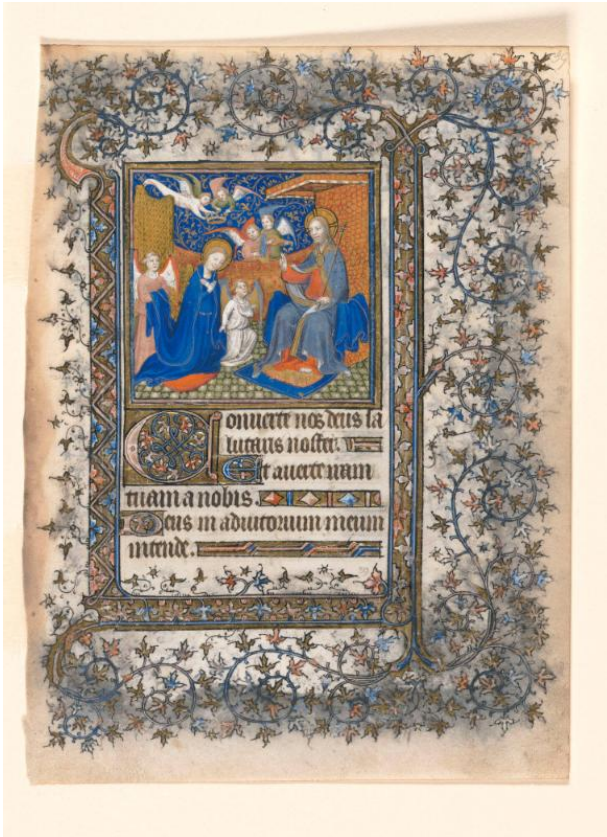 Conuerte nos deus sa
lutaris noster.
Et auerte iram
tuam a nobis.
Deus in adiutorium meum
intende.